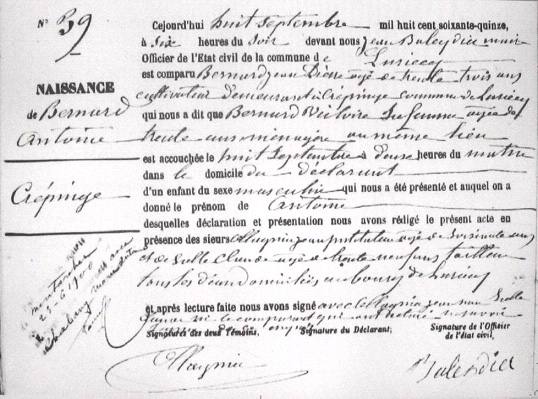 N° 39
NAISSANCE
de Bernard
Antoine
Crépinge
Cejourd'hui huit septembre mil huit cent soixante-quinze,
à six heures du soir devant nous Jean Baleydier maire
Officier de l'Etat civil de la commune de Luriecq
est comparu Bernard Jean Pierre agé de trente trois ans
cultivateur demeurant à Crépinge commune de Luriecq
qui nous a dit que Bernard Victoire Suzanne agée de
trente ans ménagère au même lieu
est accouchée le huit septembre à douze heures du matin
dans le domicile du déclarant
d'un enfant du sexe masculin qui nous a été présenté et auquel on a
donné le prénom de Antoine
desquelles déclaration et présentation nous avons rédigé le présent acte en
présence des sieurs Magnin Jean instituteur agé de ans
et de Claude agé de trente neuf ans tailleur
tous les deux domiciliés au bourg de Luriecq
et après lecture faite nous avons signé avec Magnin Jean non
Signatures des deux Témoins, Signature du Déclarant; Signature de l'Officier
de l'état civil,
Magnin
Baleydier